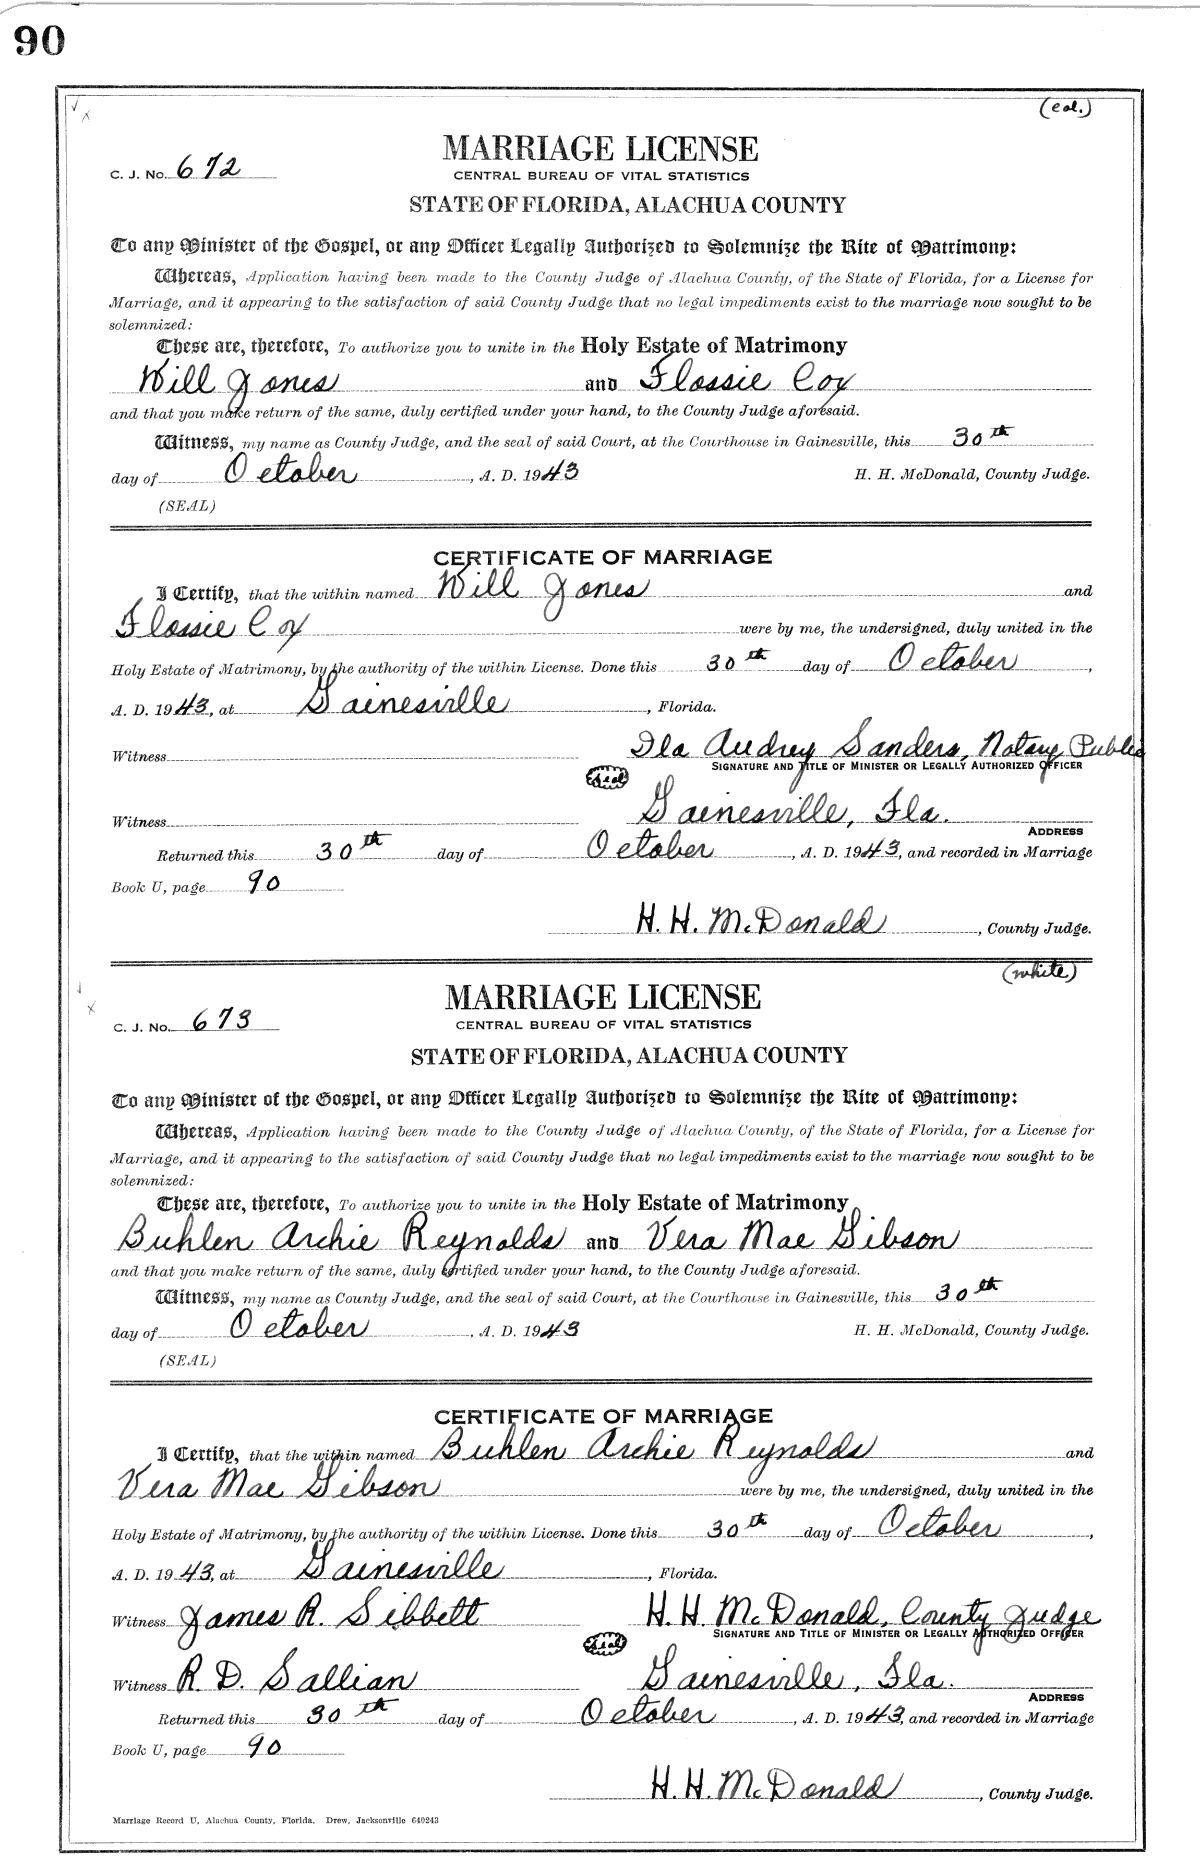 90
(col.)
MARRIAGE LICENSE
C. J. No. 672
CENTRAL BUREAU OF VITAL STATISTICS
STATE OF FLORIDA, ALACHUA COUNTY
To any Minister of the Gospel, or any Officer Legally Authorized to Solemnize the Rite of Matrimony:
Whereas, Application having been made to the County Judge of Alachua County, of the State of Florida, for a License for
Marriage, and it appearing to the satisfaction of said County Judge that no legal impediments exist to the marriage now sought to be
solemnized:
These are, therefore, To authorize you to unite in the Holy Estate of Matrimony
Will Jones and Flossie Cox
and that you make return of the same, duly certified under your hand, to the County Judge aforesaid.
Witness, my name as County Judge, and the seal of said Court, at the Courthouse in Gainesville, this 30th
day of October, A. D. 1943 H. H. McDonald, County Judge.
(SEAL)
CERTIFICATE OF MARRIAGE
I Certify, that the within named Will Jones and
Flossie Cox were by me, the undersigned, duly united in the
Holy Estate of Matrimony, by the authority of the within License. Done this 30th day of October,
A. D. 1943, at Gainesville, Florida.
Witness Ila Audrey Sanders, Notary Public
SIGNATURE AND TITLE OF MINISTER OR LEGALLY AUTHORIZED OFFICER
Seal
Witness Gainesville, Fla.
ADDRESS
Returned this 30th day of October, A. D. 1943, and recorded in Marriage
Book U, page 90
H. H. McDonald, County Judge.
(white)
MARRIAGE LICENSE
C. J. No. 673
CENTRAL BUREAU OF VITAL STATISTICS
STATE OF FLORIDA, ALACHUA COUNTY
To any Minister of the Gospel, or any Officer Legally Authorized to Solemnize the Rite of Matrimony:
Whereas, Application having been made to the County Judge of Alachua County, of the State of Florida, for a License for
Marriage, and it appearing to the satisfaction of said County Judge that no legal impediments exist to the marriage now sought to be
solemnized:
These are, therefore, To authorize you to unite in the Holy Estate of Matrimony
Buhlen Archie Reynolds and Vera Mae Gibson
and that you make return of the same, duly certified under your hand, to the County Judge aforesaid.
Witness, my name as County Judge, and the seal of said Court, at the Courthouse in Gainesville, this 30th
day of October, A. D. 1943 H. H. McDonald, County Judge.
(SEAL)
CERTIFICATE OF MARRIAGE
I Certify, that the within named Buhlen Archie Reynolds and
Vera Mae Gibson were by me, the undersigned, duly united in the
Holy Estate of Matrimony, by the authority of the within License. Done this 30th day of October,
A. D. 1943, at Gainesville, Florida.
Witness James R. Sibbett H. H. McDonald, County Judge
SIGNATURE AND TITLE OF MINISTER OR LEGALLY AUTHORIZED OFFICER
Seal
Witness R. D. Sallian Gainesville, Fla.
ADDRESS
Returned this 30th day of October, A. D. 1943, and recorded in Marriage
Book U, page 90
H. H. McDonald, County Judge.
Marriage Record U, Alachua County, Florida. Drew, Jacksonville 640243